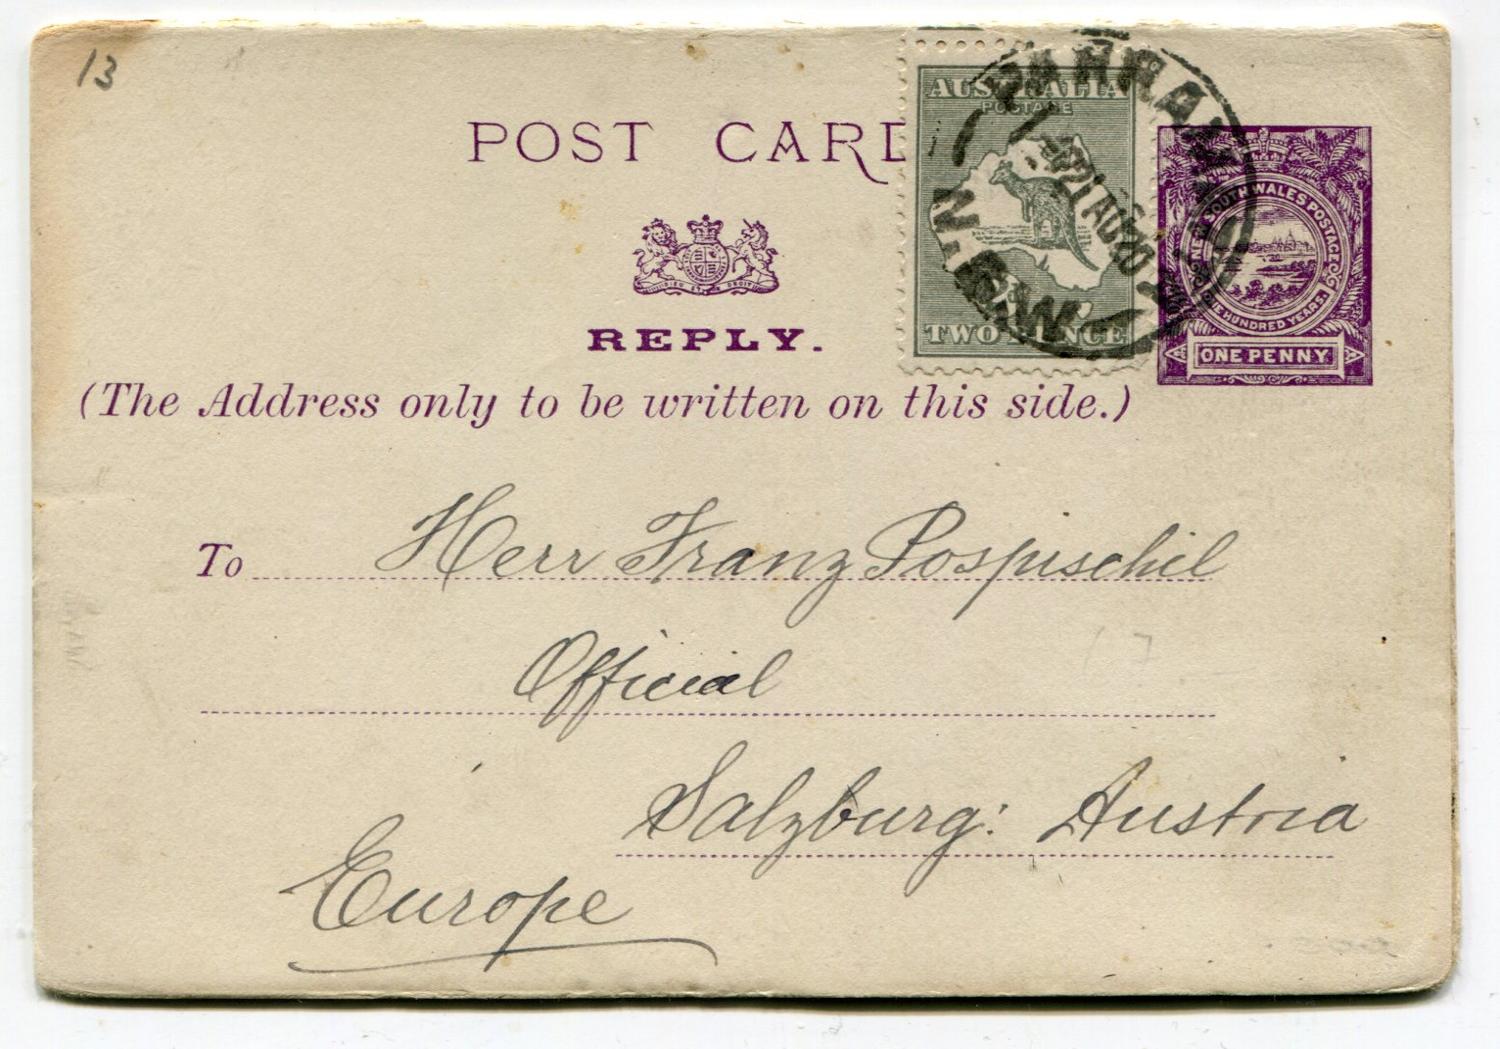 13
POST CARD
AUSTRALIA
POSTAGE
TWO PENCE
21 AU 20
N.S.W
NEW SOUTH WALES POSTAGE
ONE HUNDRED YEARS.
ONE PENNY
REPLY.
(The Address only to be written on this side.)
To Herr Franz Pospischil
Official
Salzburg: Austria
Europe